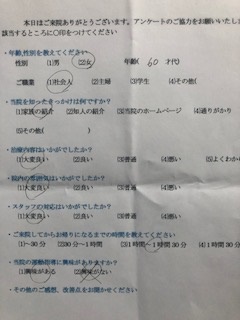 本日はご来院ありがとうございます。アンケートのご協力をお願いいたしま
該当するところに○印をつけてください
・年齢,性別を教えてください
性別 (1)男 (2)女 年齢( 60 才代)
ご職業 (1)社会人 (2)主婦 (3)学生 (4)その他(
・当院を知ったきっかけは何ですか?
(1)家族の紹介 (2)知人の紹介 (3)当院のホームページ (4)通りがかり
(5)その他( )
・治療内容はいかがでしたか?
(1)大変良い (2)良い (3)普通 (4)悪い (5)よくわから
・院内の雰囲気はいかがでしたか?
(1)大変良い (2)良い (3)普通 (4)悪い
・スタッフの対応はいかがでしたか?
(1)大変良い (2)良い (3)普通 (4)悪い
・ご来院してからお帰りになるまでの時間を教えてください
(1)~30分 (2)30分~1時間 (3)1時間~1時間30分 (4)1時間30分
・当院の運動指導に興味がありますか?
(1)興味がある (2)興味がない
・その他のご感想、改善点をお聞かせください